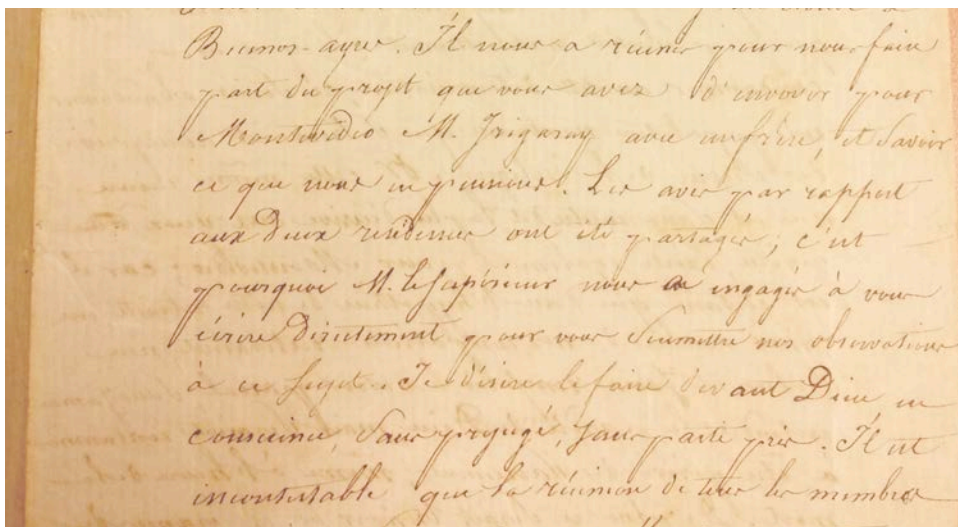 Buenos-ayres. Il nous a réunis pour nous faire
part du projet que vous avez d'envoyer pour
Montevideo M. Irigaray avec un frère, et savoir
ce que nous en pensions. Les avis par rapport
aux deux résidences ont été partagés; c'est
pourquoi M. le Supérieur nous a engagés à vous
écrire directement pour vous soumettre nos observations
à ce sujet. Je désire le faire devant Dieu en
conscience, sans préjugé, sans parti pris. Il est
incontestable que la réunion de tous les membres